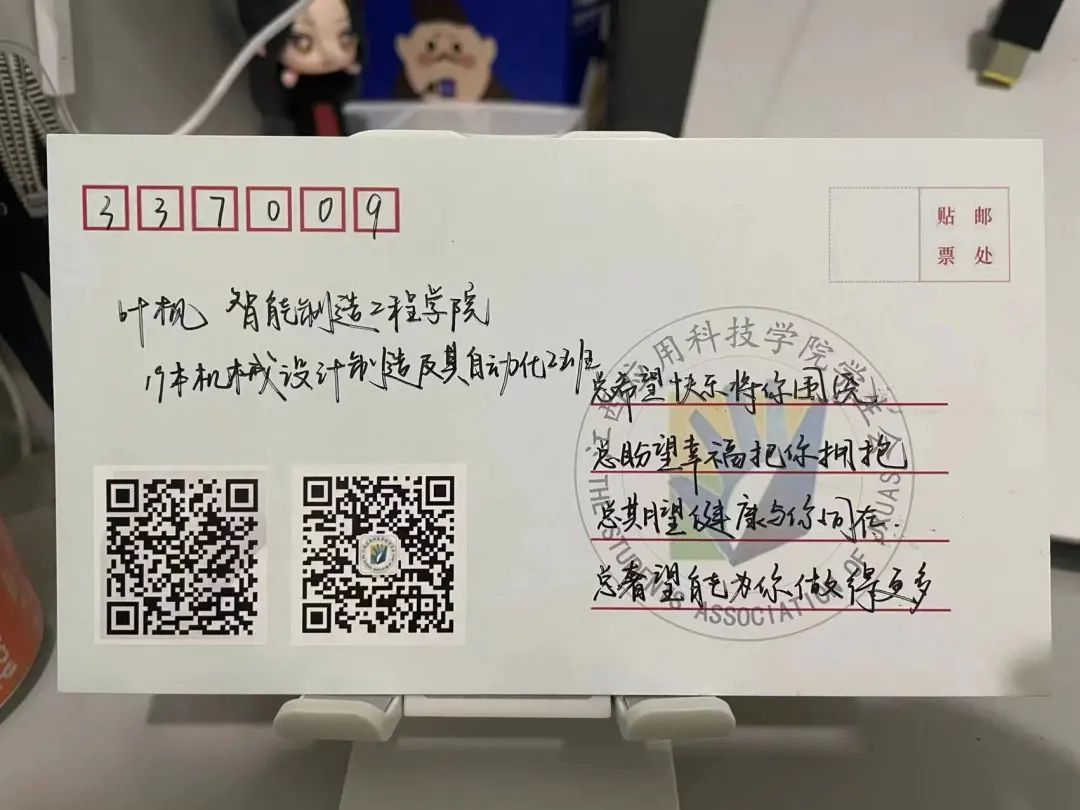 337009
贴 邮
票 处
叶枫 智能制造工程学院
19本机械设计制造及其自动化2班
总希望快乐将你围绕
总盼望幸福把你拥抱
总期望健康与你同在.
总奢望自己为你做得更多
江西应用科技学院学生会
THE STUDENTS ASSOCIATION OF JXUAS